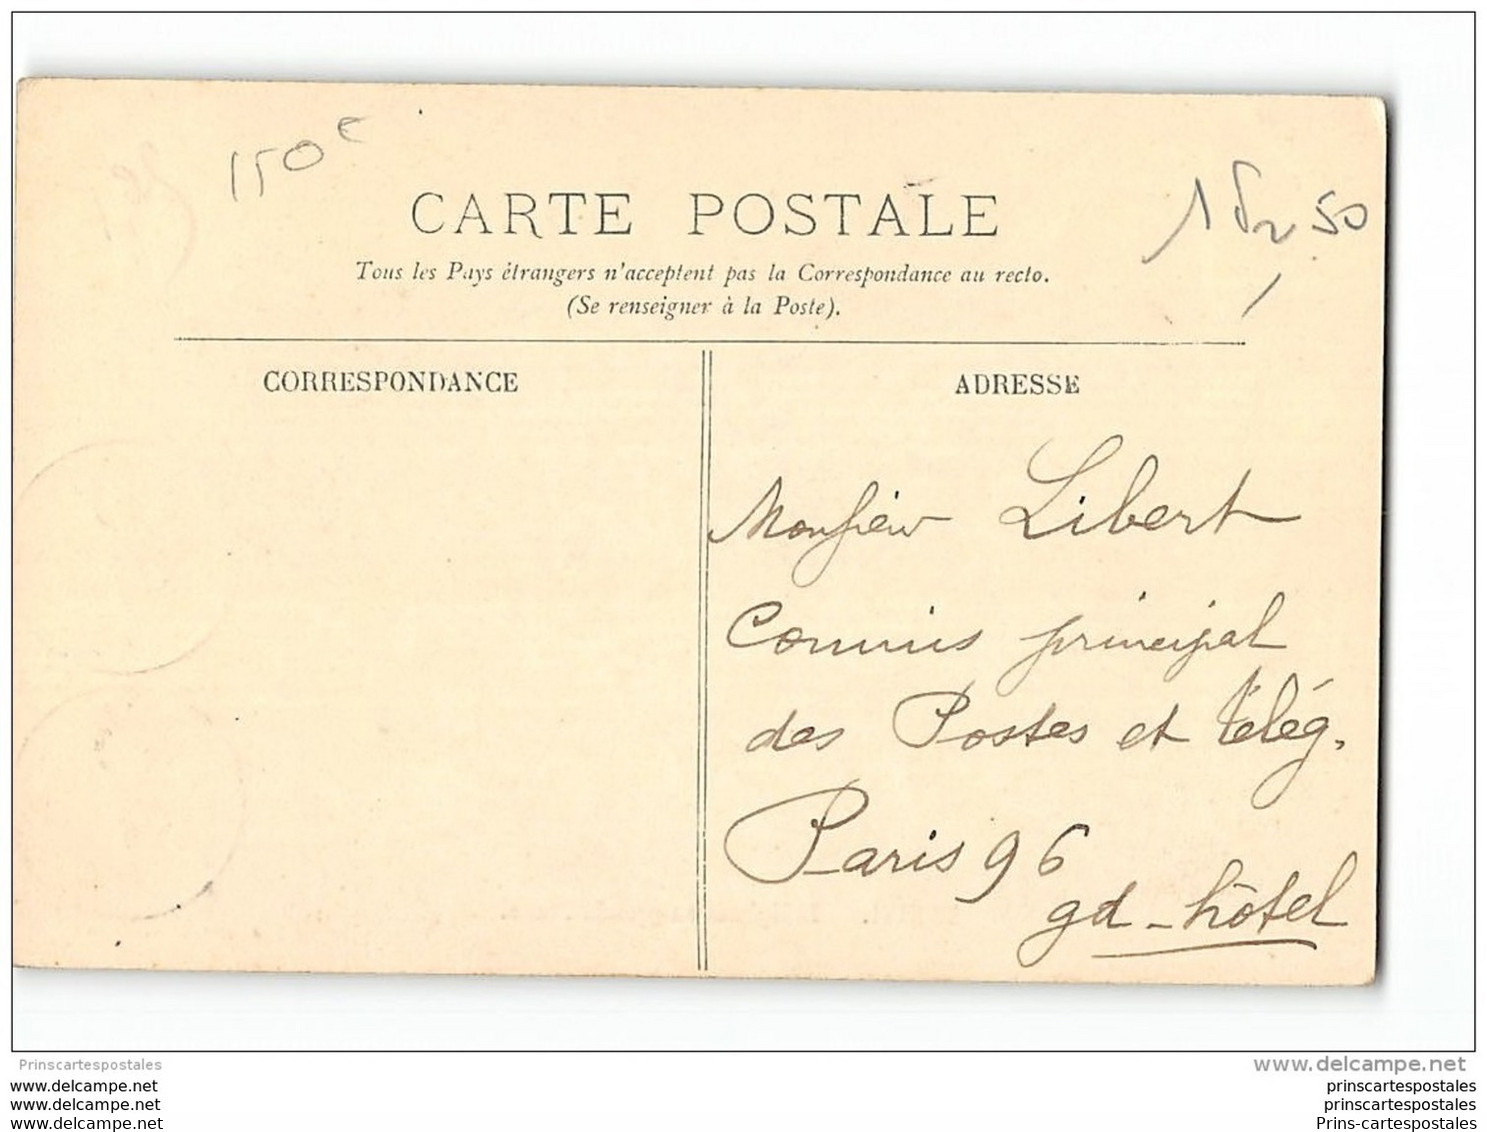 150 €
CARTE POSTALE
Tous les Pays étrangers n'acceptent pas la Correspondance au recto.
(Se renseigner à la Poste).
CORRESPONDANCE
ADRESSE
Monsieur Libert
Commis principal
des Postes et Télég.
Paris 96
gd-hôtel
Prinscartespostales
www.delcampe.net
www.delcampe.net
www.delcampe.net
www.delcampe.net
prinscartespostales
prinscartespostales
Prins-cartespostales